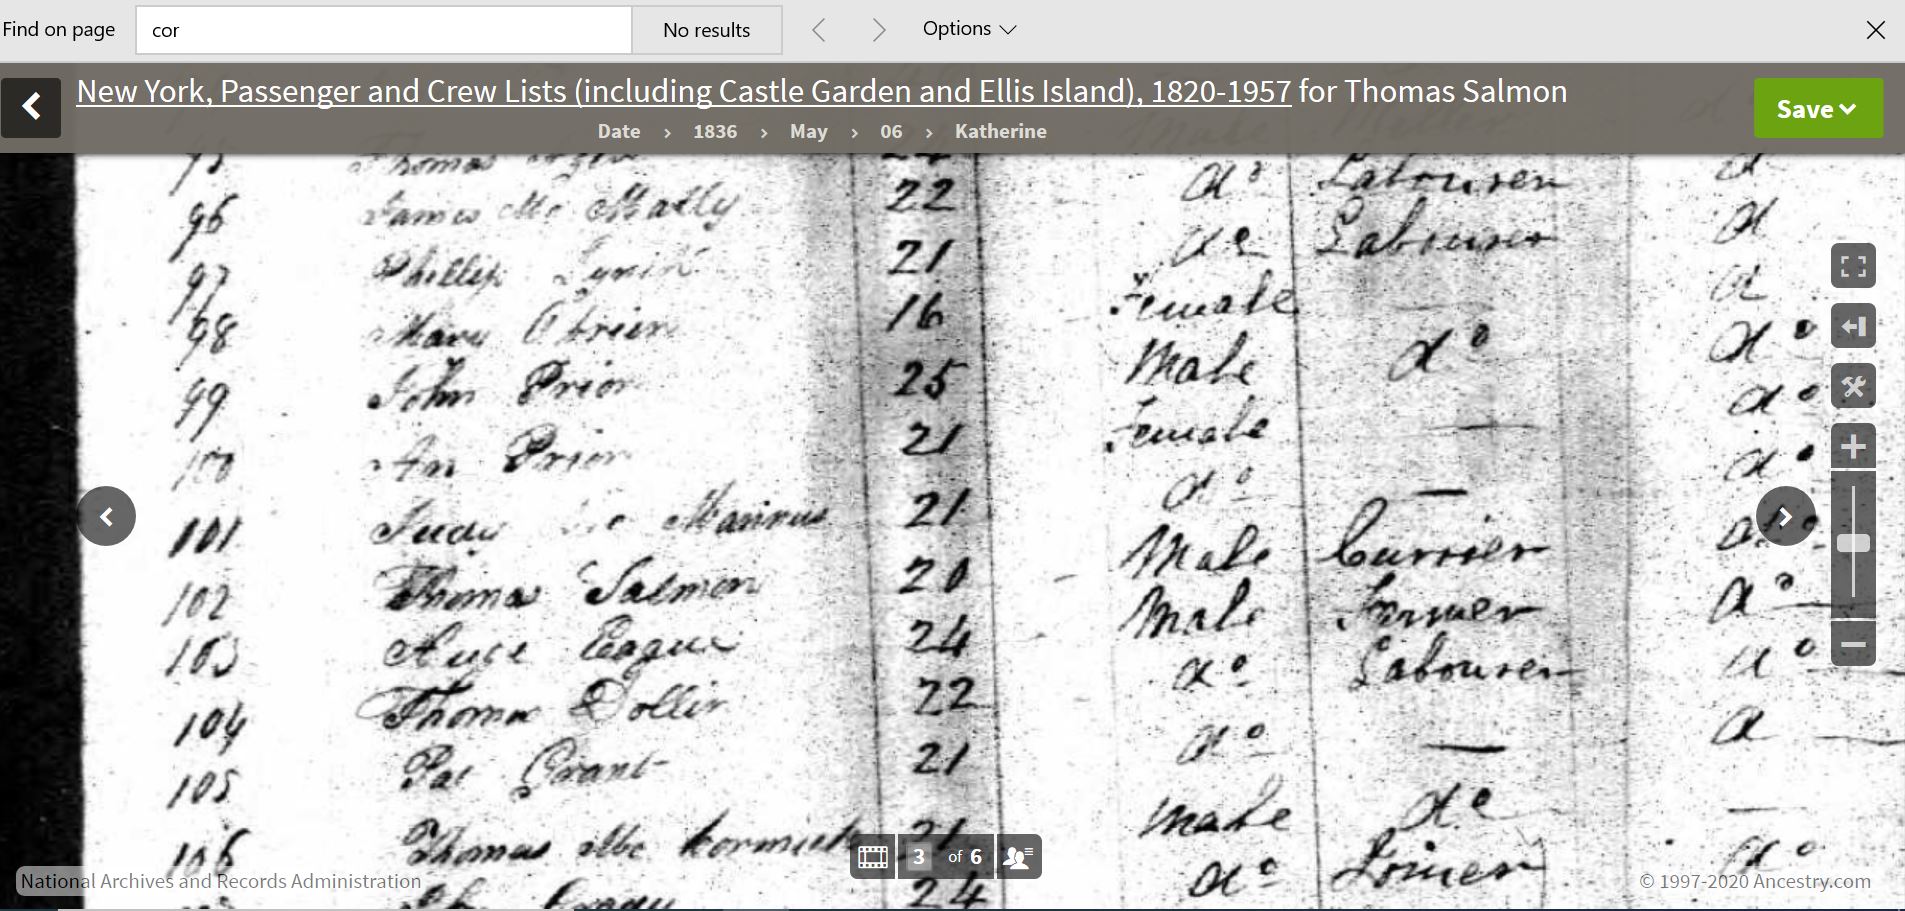 Find on page cor No results Options
New York, Passenger and Crew Lists (including Castle Garden and Ellis Island), 1820-1957 for Thomas Salmon
Save
Date › 1836 › May › 06 › Katherine
95 Thomas
96 James Mc Nally 22 do Labourer d
97 Phillip 21 do Labourer d
98 Mary Obrien 16 Female d
99 John Prior 25 Male do do
100 An Prior 21 Female do
101 Judy Mc Manus 21 do — do
102 Thomas Salmon 20 Male Currier do
103 24 Male Farmer do
104 Thomas 22 do Labourer do
105 Pat Grant 21 do — d
106 Thomas Mc Kormick 21 Male do
24 do Joiner do
3 of 6
National Archives and Records Administration
© 1997-2020 Ancestry.com